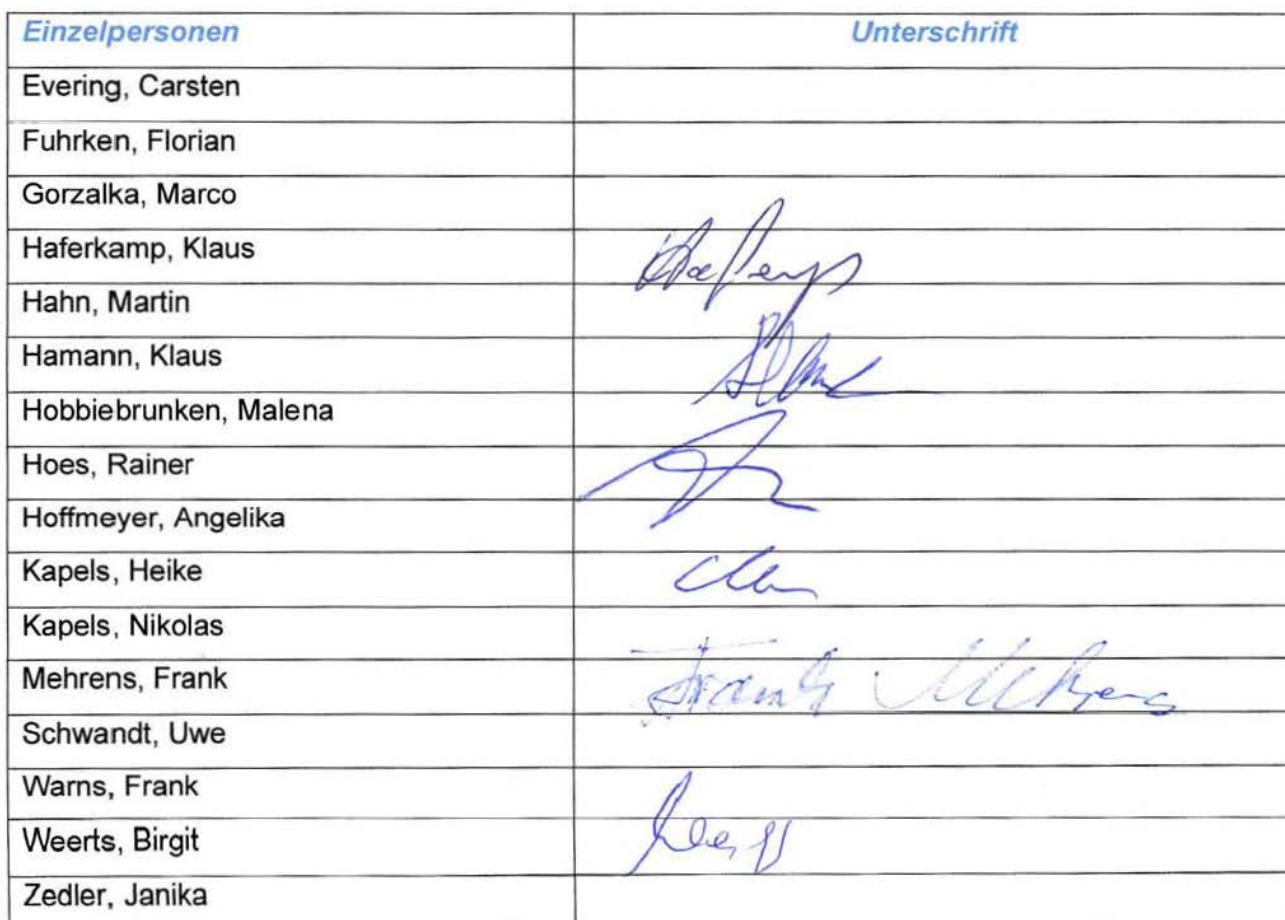 Einzelpersonen Unterschrift
Evering, Carsten
Fuhrken, Florian
Gorzalka, Marco
Haferkamp, Klaus
Hahn, Martin
Hamann, Klaus
Hobbiebrunken, Malena
Hoes, Rainer
Hoffmeyer, Angelika
Kapels, Heike
Kapels, Nikolas
Mehrens, Frank Frank Mehrens
Schwandt, Uwe
Warns, Frank
Weerts, Birgit
Zedler, Janika